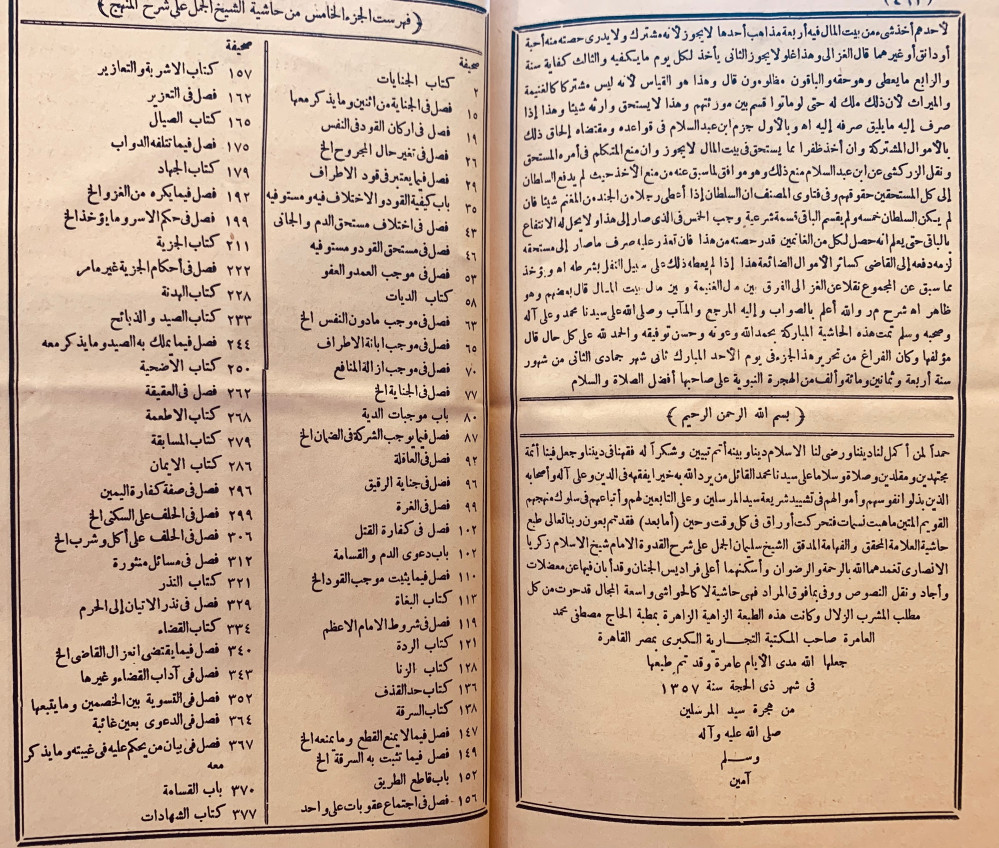 (٤١٢)
لأحدهم أخذ شىء من بيت المال فيه أربعة مذاهب أحدها لايجوز لأنه مشترك ولا يدرى حصته منه أحبة
أودانق أو غيرهما قال الغزالى وهذا غلو لايجوز الثانى يأخذ لكل يوم مايكفيه والثالث كفاية سنة
والرابع مايعطى وهو حقه والباقون مظلومون قال وهذا هو القياس لأنه ليس مشتركا كالغنيمة
والميراث لأن ذلك ملك له حتى لو ماتوا قسم بين مورثتهم وهذا لايستحق وارثه شيئا وهذا إذا
صرف إليه مايليق صرفه إليه اه وبالأول جزم ابن عبد السلام فى قواعده ومقتضاه إلحاق ذلك
بالأموال المشتركة وان أخذ ظفرا مما يستحق فى بيت المال لايجوز وان منع المتكلم فى أمره المستحق
ونقل الزركشى عن ابن عبد السلام منع ذلك وهو موافق لما سبق عنه من منع الأخذ حيث لم يدفع السلطان
إلى كل المستحقين حقوقهم وفى فتاوى المصنف ان السلطان إذا أعطى رجلا من الجند من المغنم شيئا فان
لم يكن السلطان خمسه ولم يقسم الباقى قسمة شرعية وجب الخمس فى الذى صار إلى هذا ولا يحل له الانتفاع
بالباقى حتى يعلم انه حصل لكل من الغانمين قدر حصته من هذا فان تعذر عليه صرف ماصار إلى مستحقه
لزمه دفعه إلى القاضى كسائر الأموال الضائعة هذا إذا لم يعطه ذلك على سبيل النفل بشرطه اه ويؤخذ
مما سبق عن المجموع نقلا عن الغزالى الفرق بين مال الغنيمة وبين مال بيت المال قال بعضهم وهو
ظاهر اه شرح م ر والله أعلم بالصواب وإليه المرجع والمآب وصلى الله على سيدنا محمد وعلى آله
وصحبه وسلم تمت هذه الحاشية المباركة بحمد الله وعونه وحسن توفيقه والحمد لله على كل حال قال
مؤلفها وكان الفراغ من تحرير هذا الجزء فى يوم الأحد المبارك ثانى شهر جمادى الثانى من شهور
سنة أربعة وثمانين ومائة وألف من الهجرة النبوية على صاحبها أفضل الصلاة والسلام
﴿ بسم الله الرحمن الرحيم ﴾
حمدا لمن أكمل لنا ديننا ورضى لنا الاسلام دينا وبينه أتم تبيين وشكرا له فقهنا فى ديننا وجعل فينا أئمة
مجتهدين ومقلدين وصلاة وسلاما على سيدنا محمد القائل من يرد الله به خيرا يفقهه فى الدين وعلى آله وأصحابه
الذين بذلوا نفوسهم وأموالهم فى تشييد شريعة سيد المرسلين وعلى التابعين لهم وأتباعهم فى سلوك منهجهم
القويم المتين ماهبت نسيمات فتحركت أوراق فى كل وقت وحين (أما بعد) فقد تم بعون ربنا تعالى طبع
حاشية العلامة المحقق والفهامة المدقق الشيخ سليمان الجمل على شرح القدوة الامام شيخ الاسلام زكريا
الانصارى تغمدهما الله بالرحمة والرضوان وأسكنهما أعلى فراديس الجنان وقد أبان فيها عن معضلات
وأجاد ونقل النصوص ووفى بما فوق المراد فهى حاشية لا كالحواشى واسعة المجال قد حوت من كل
مطلب المشرب الزلال وكانت هذه الطبعة الزاهية الزاهرة بمطبة الحاج مصطفى محمد
العامرة صاحب المكتبة التجارية الكبرى بمصر القاهرة
جعلها الله مدى الأيام عامرة وقد تم طبعها
فى شهر ذى الحجة سنة ١٣٥٧
من هجرة سيد المرسلين
صلى الله عليه وآله
وسلم
آمين
﴿ فهرست الجزء الخامس من حاشية الشيخ الجمل على شرح المنهج ﴾
صحيفة
٢ كتاب الجنايات
١٥ فصل فى الجناية من اثنين وما يذكر معها
١٩ فصل فى اركان القود فى النفس
٢٦ فصل فى تغير حال المجروح الخ
٢٩ فصل فيما يعتبر فى قود الاطراف
٣٥ باب كيفية القود والاختلاف فيه ومستوفيه
٤٣ فصل فى اختلاف مستحق الدم والجانى
٤٦ فصل فى مستحق القود ومستوفيه
٥٣ فصل فى موجب العمد والعفو
٥٨ كتاب الديات
٦٣ فصل فى موجب مادون النفس الخ
٦٥ فصل فى موجب ابانة الاطراف
٧٠ فصل فى موجب ازالة المنافع
٧٧ فصل فى الجناية الخ
٨٠ باب موجبات الدية
٨٧ فصل فيما يوجب الشركة فى الضمان الخ
٩٢ فصل فى العاقلة
٩٦ فصل فى جناية الرقيق
٩٩ فصل فى الغرة
١٠٢ فصل فى كفارة القتل
١٠٢ باب دعوى الدم والقسامة
١١٠ فصل فيما يثبت موجب القود الخ
١١٣ كتاب البغاة
١١٩ فصل فى شروط الامام الاعظم
١٢١ كتاب الردة
١٢٨ كتاب الزنا
١٣٦ كتاب حد القذف
١٣٨ كتاب السرقة
١٤٧ فصل فيما لايمنع القطع وما يمنعه الخ
١٤٩ فصل فيما تثبت به السرقة الخ
١٥٢ باب قاطع الطريق
١٥٦ فصل فى اجتماع عقوبات على واحد
صحيفة
١٥٧ كتاب الاشربة والتعازير
١٦٢ فصل فى التعزير
١٦٥ كتاب الصيال
١٧٥ فصل فيما تتلفه الدواب
١٧٩ كتاب الجهاد
١٩٢ فصل فيما يكره من الغزو الخ
١٩٩ فصل فى حكم الاسر وما يؤخذ الخ
٢١١ كتاب الجزية
٢٢٢ فصل فى أحكام الجزية غير مامر
٢٢٨ كتاب الهدنة
٢٣٣ كتاب الصيد والذبائح
٢٤٤ فصل فيما تملك به الصيد وما يذكر معه
٢٥٠ كتاب الأضحية
٢٦٢ فصل فى العقيقة
٢٦٨ كتاب الاطعمة
٢٧٩ كتاب المسابقة
٢٨٦ كتاب الايمان
٢٩٦ فصل فى صفة كفارة اليمين
٢٩٩ فصل فى الحلف على السكنى الخ
٣٠٦ فصل فى الحلف على أكل وشرب الخ
٣١٢ فصل فى مسائل منثورة
٣٢١ كتاب النذر
٣٢٩ فصل فى نذر الاتيان إلى الحرم
٣٣٤ كتاب القضاء
٣٤٠ فصل فيما يقتضى انعزال القاضى الخ
٣٤٣ فصل فى آداب القضاء وغيرها
٣٥٢ فصل فى التسوية بين الخصمين وما يتبعها
٣٦٤ فصل فى الدعوى بعين غائبة
٣٦٧ فصل فى بيان من يحكم عليه فى غيبته وما يذكر
معه
٣٧٠ باب القسامة
٣٧٧ كتاب الشهادات